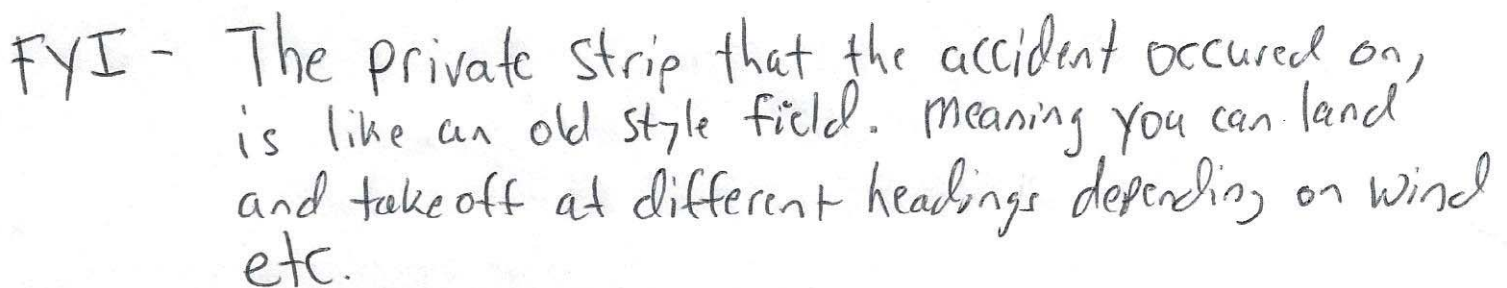 FYI - The private strip that the accident occured on,
is like an old style field. Meaning you can land
and takeoff at different headings depending on wind
etc.